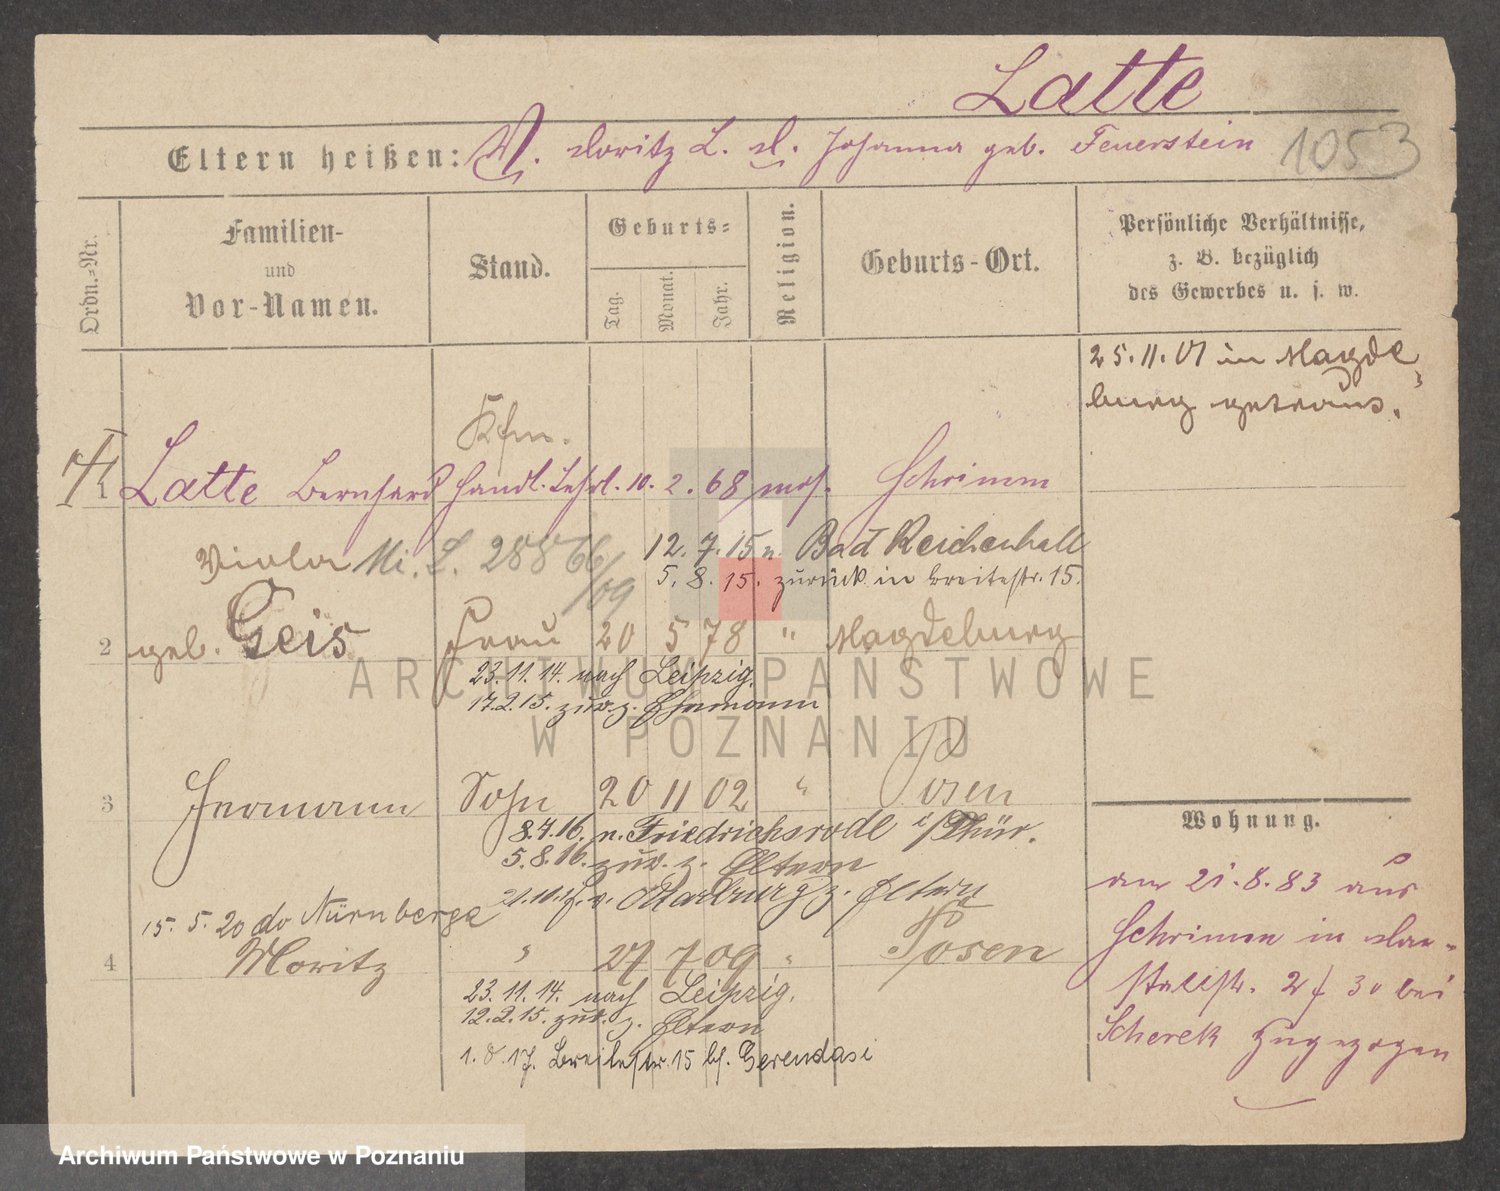 Latte
Eltern heißen: V. Moritz L. M. Johanna geb. Feuerstein
1053
Ordn.-Nr.
Familien-
und
Vor-Namen.
Stand.
Geburts-
Tag.
Monat.
Jahr.
Religion.
Geburts-Ort.
Persönliche Verhältnisse,
z. B. bezüglich
des Gewerbes u. s. w.
25.11.01 in Magde-
burg getraut.
Kfm.
1 Latte Bernhard Handl. Lehrl. 10. 2. 68 mos. Schrimm
12. 7. 15 n. Bad Reichenhall
Viola Mi. L. 28866/09
5. 8. 15. zurück in Breitestr. 15.
2 geb. Geis Frau 20 5 78 " Magdeburg
23.11.14. nach Leipzig.
17.2.15. zur. z. Ehemann
3 Hermann Sohn 20 11 02 " Posen
8.7.16. n. Friedrichsrode i/Thür.
5.8.16. zur. z. Eltern
v. Marburg z. Eltern
15. 5. 20 do Nürnberg
4 Moritz " 27 7 09 " Posen
23.11.14. nach Leipzig.
12.2.15. zur. z. Eltern
1. 8. 17. Breitestr. 15 bf. Gerendasi
Wohnung.
am 21.8.83 aus
Schrimm in Mar-
stallstr. 2 f 30 bei
Scherek zugezogen
ARCHIWUM PAŃSTWOWE
W POZNANIU
Archiwum Państwowe w Poznaniu